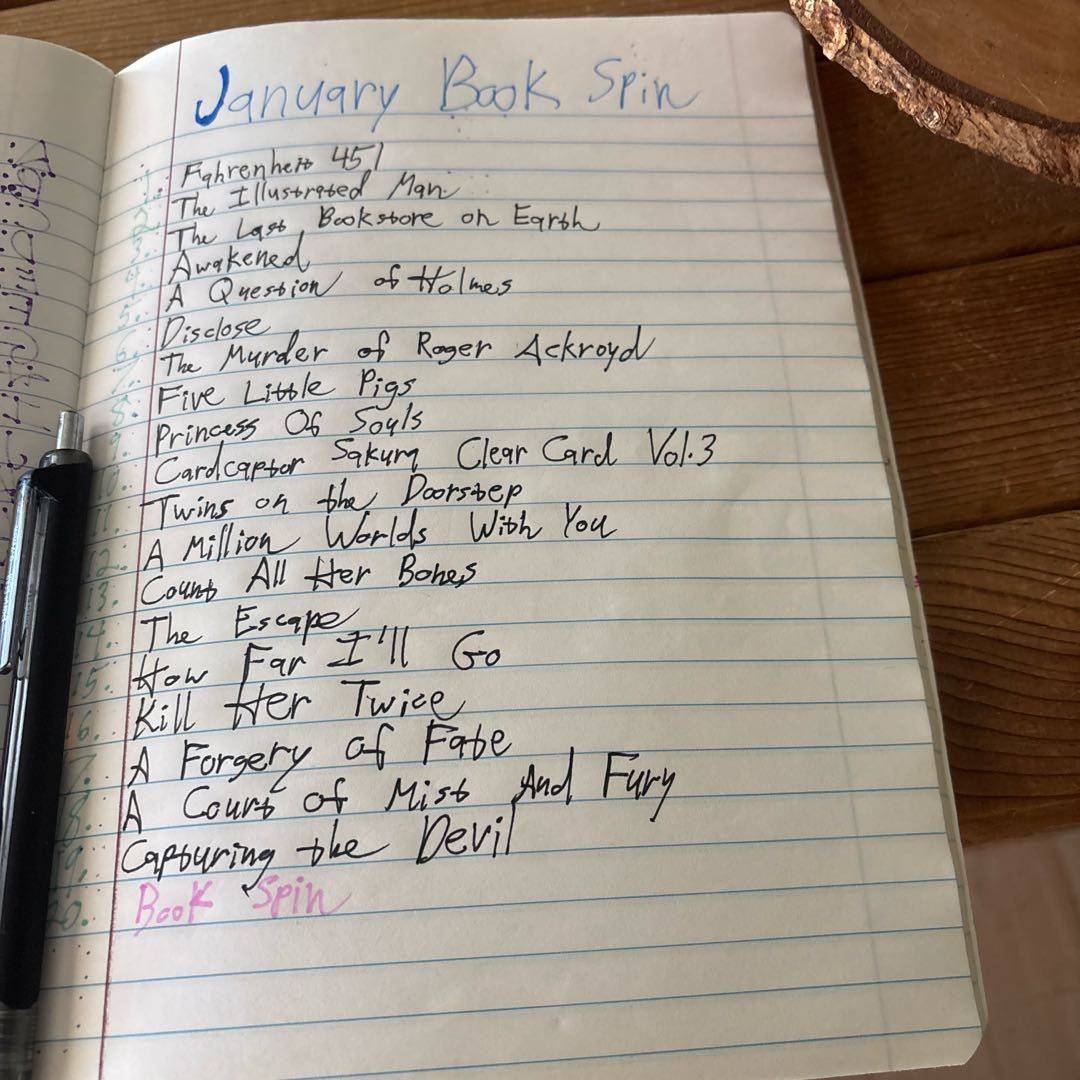 January Book Spin
1. Fahrenheit 451
2. The Illustrated Man
3. The Last Bookstore on Earth
4. Awakened
5. A Question of Holmes
6. Disclose
7. The Murder of Roger Ackroyd
8. Five Little Pigs
9. Princess Of Souls
10. Cardcaptor Sakura Clear Card Vol.3
11. Twins on the Doorstep
12. A Million Worlds With You
13. Count All Her Bones
14. The Escape
15. How Far I'll Go
16. Kill Her Twice
17. A Forgery of Fate
18. A Court of Mist And Fury
19. Capturing the Devil
20. Book Spin